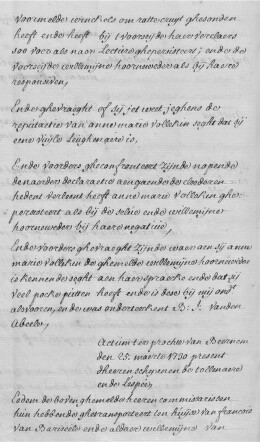 voormelde winckels om rattecruyt ghesonden
heeft ende heeft bij t voorseyde haer verclaers
soo voor als naer Lecture ghepersisteert, ende de
voorseyde willemijne hoornweder als bij haere
responsiven,
Ende ghevraeght of sij iet weet, jeghens de
reputatie van anne marie vollekin seght dat sij
eene vuijle leughenaere is,
Ende voorders gheconfronteert zijnde nopende
de naerder declaratie aengaende de cleederen
hedent verleent heeft anne marie vollekin ghe
persisteert als bij de selve ende willemijne
hoornweders bij haere negative,
Ende voorders ghevraeght zijnde waer aen sij anne
marie vollekin de ghemelde willemijne hoornweder
is kennende seght aen haer spraecke ende dat sij
veel pocke putten heeft ende is dese bij mij
als vooren, ende was onderteekent B: J. vanden
Abeele,
Actum ten prochie van Beernem
den 25. maerte 1730 present
d'heeren schijnen de tollenaire
ende Lespeis,
Eedem de boven ghemelde heeren commissarissen
hun hebbende ghetransporteert ten huijse van francois
van Barisseele ende aldaer willemijne van